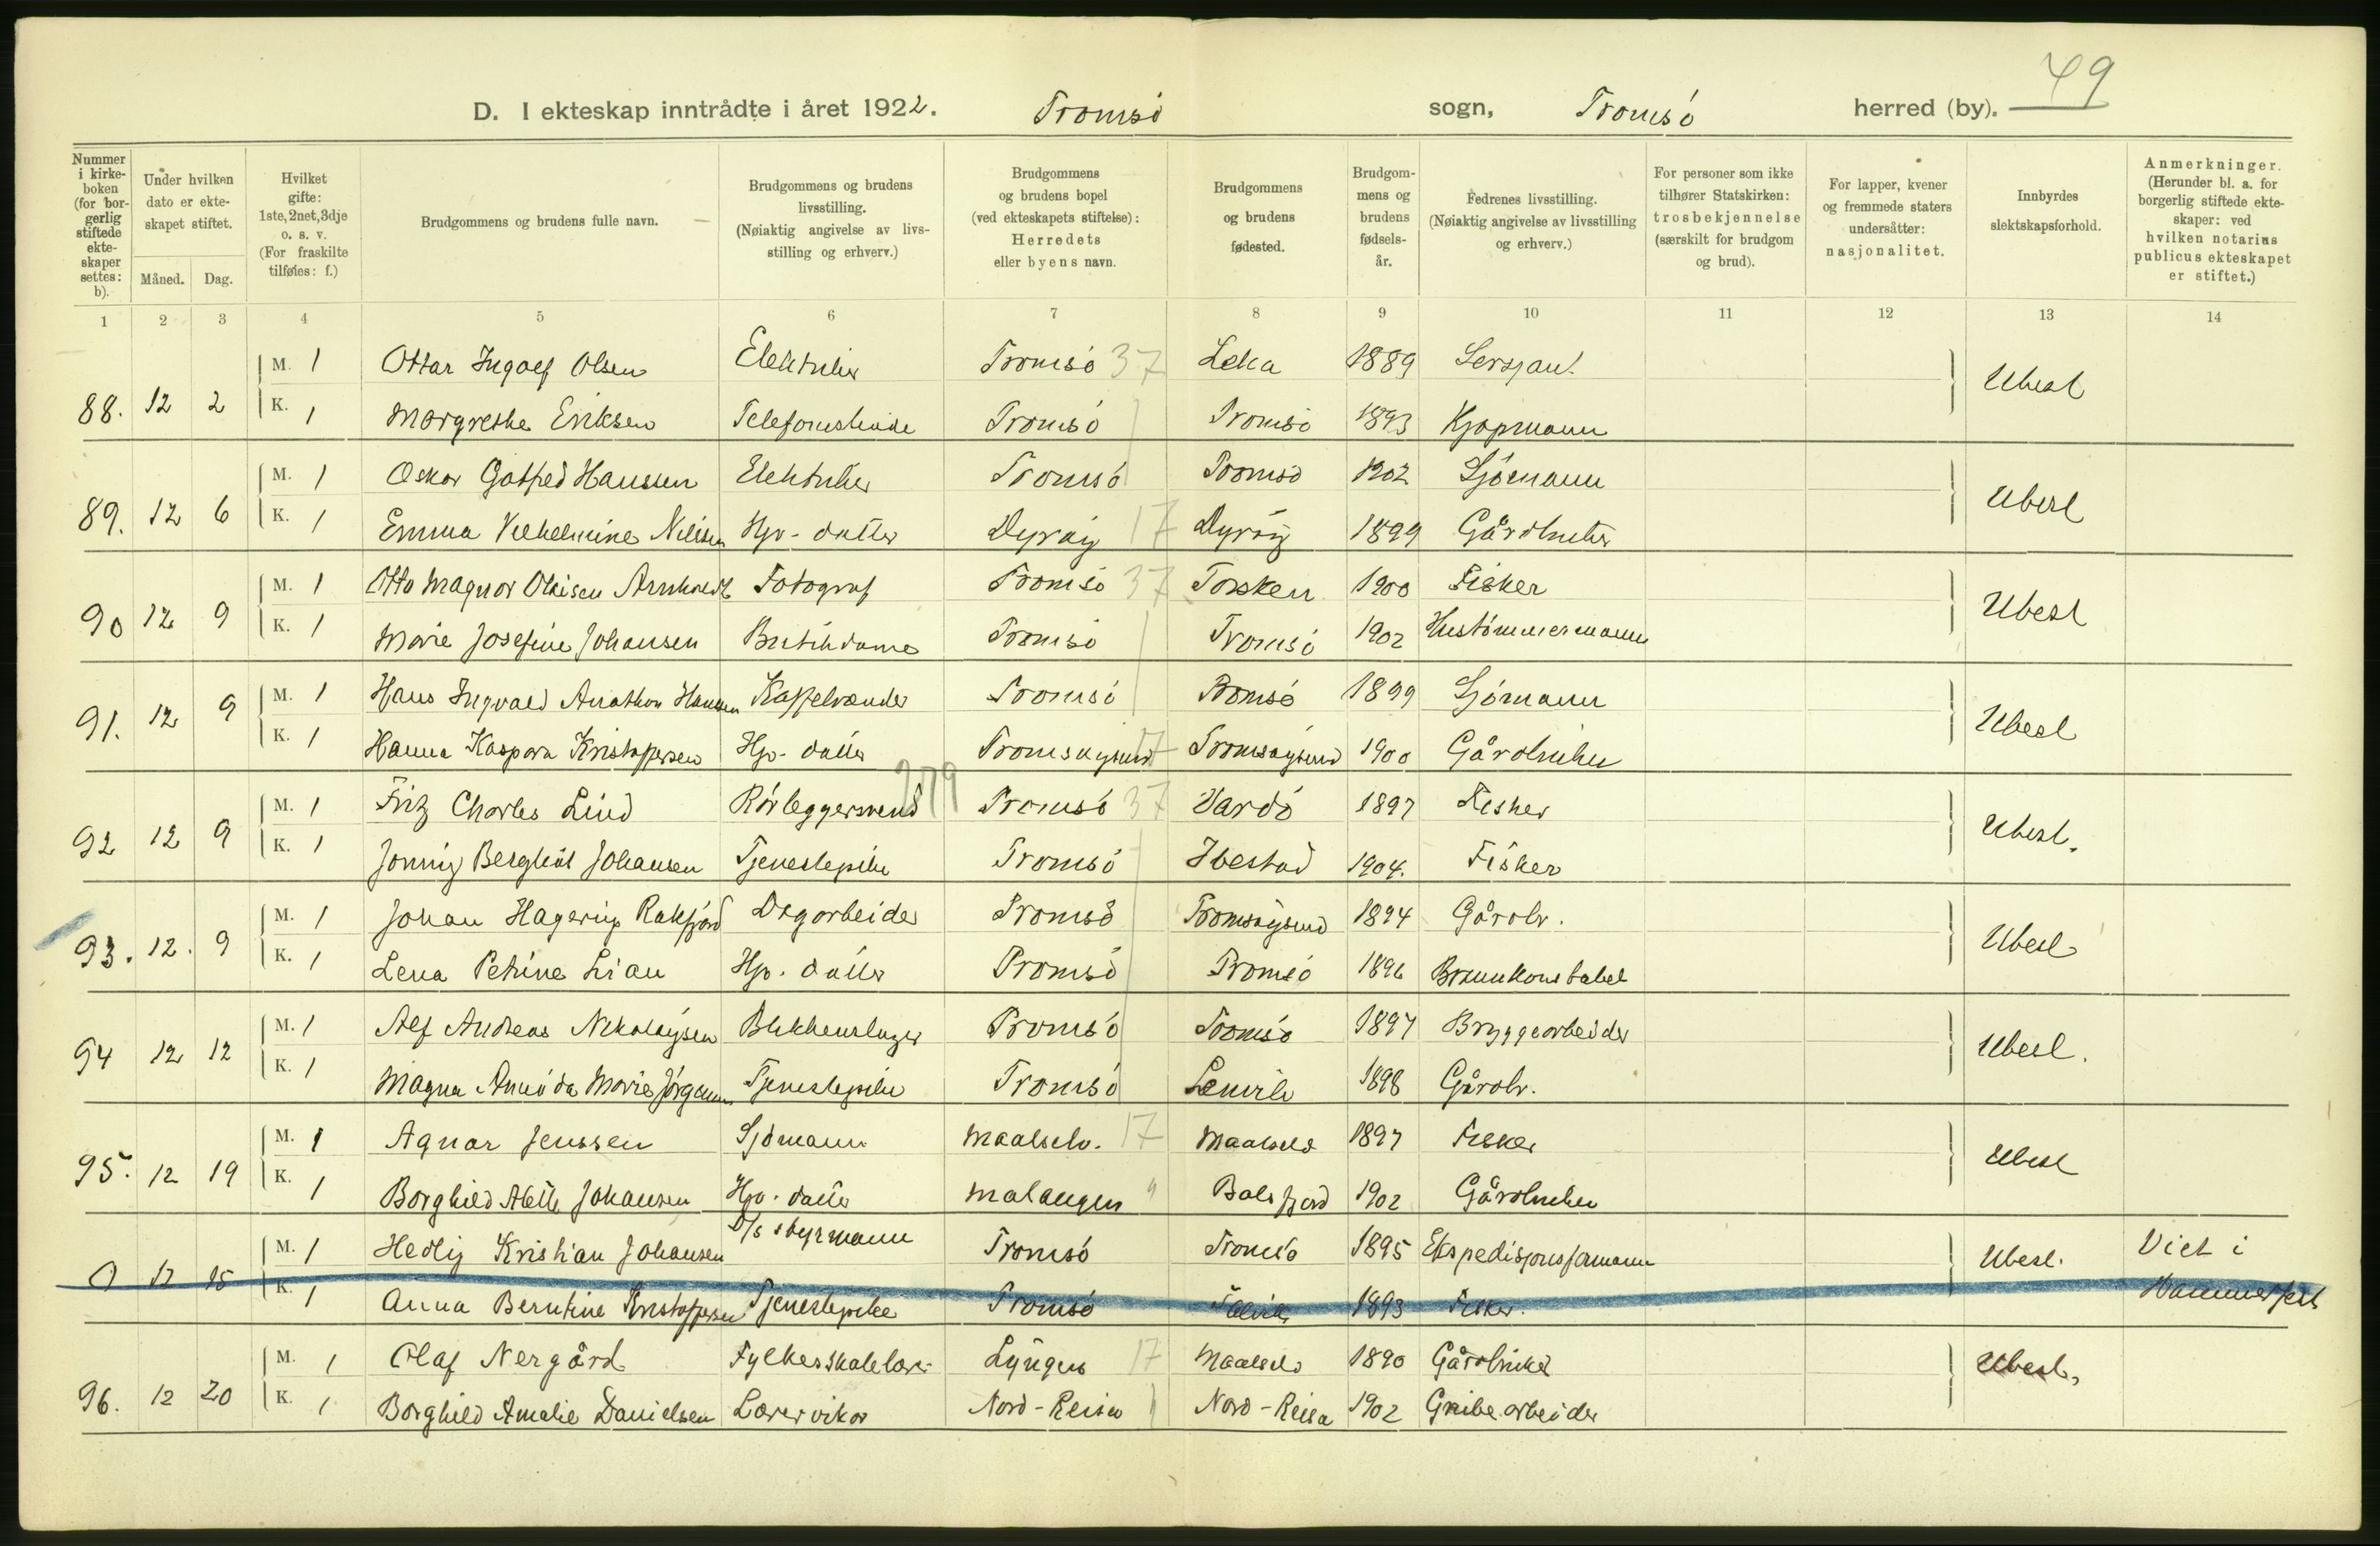 49
D. I ekteskap inntrådte i året 1922. Tromsö sogn, Tromsö herred (by).
Nummer i kirke-boken (for bor-gerlig stiftede ekte-skaper settes: b).
Under hvilken dato er ekte-skapet stiftet.
Måned. Dag.
Hvilket gifte: 1ste, 2net, 3dje o. s. v. (For fraskilte tilføies: f.)
Brudgommens og brudens fulle navn.
Brudgommens og brudens livsstilling. (Nøiaktig angivelse av livs-stilling og erhverv.)
Brudgommens og brudens bopel (ved ekteskapets stiftelse): Herredets eller byens navn.
Brudgommens og brudens fødested.
Brudgom-mens og brudens fødsels-år.
Fedrenes livsstilling. (Nøiaktig angivelse av livsstilling og erhverv.)
For personer som ikke tilhører Statskirken: trosbekjennelse (særskilt for brudgom og brud).
For lapper, kvener og fremmede staters undersåtter: nasjonalitet.
Innbyrdes slektskapsforhold.
Anmerkninger. (Herunder bl. a. for borgerlig stiftede ekte-skaper: ved hvilken notarius publicus ekteskapet er stiftet.)
1 2 3 4 5 6 7 8 9 10 11 12 13 14
M. 1 Ottar Ingolf Olsen Elektriker Tromsö 37 Leka 1889 Sersjant
88. 12 2 K. 1 Margrethe Eriksen Telefonistinde Tromsö Tromsö 1893 Kjøpmann Ubesl
M. 1 Oskar Gotfred Hanssen Elektriker Tromsö Tromsö 1902 Sjömann
89. 12 6 K. 1 Emma Vilhelmine Nilsen Hjv-datter Dyröy 17 Dyröy 1899 Gårdbruker Ubesl
M. 1 Otto Magnor Fotograf Tromsö 37 Torsken 1900 Fisker
90 12 9 K. 1 Marie Josefine Johansen Butikdame Tromsö Tromsö 1902 Hustömmermann Ubesl
M. 1 Hans Ingvald Hansen Tromsö Tromsö 1899 Sjömann
91. 12 9 K. 1 Hanna Kaspara Kristoffersen Hjv-datter Tromsöysund 17 Tromsöysund 1900 Gårdbruker Ubesl
M. 1 Fritz Charles Lind Rörleggersvend 279 Tromsö 37 Vardö 1897 Fisker
92 12 9 K. 1 Jonny Bergliot Johansen Tjenestepike Tromsö Ibestad 1904. Fisker Ubesl.
M. 1 Johan Hagerup Rakfjord Dagarbeider Tromsö Tromsöysund 1894 Gårdbr.
93. 12. 9 K. 1 Lena Petrine Lian Hjv. datter Tromsö Tromsö 1896 Brannkonstabel Ubesl
M. 1 Alf Andreas Nikolaysen Blikkenslager Tromsö Tromsö 1897 Bryggearbeider
94 12 12 K. 1 Magna Marie Jörgensen Tjenestepike Tromsö Lenvik 1898 Gårdbr. Ubesl.
M. 1 Agnar Jenssen Sjömann Maalselv. 17 Maalselv 1897 Fisker
95. 12 19 K. 1 Borghild Johansen Hjv. datter Malangen " Balsfjord 1902 Gårdbruker Ubesl
M. 1 Hedly Kristian Johansen D/s styrmann Tromsö Tromsö 1895 Ekspedisjonsformann Ubesl. Viet i
0 12 15 K. 1 Anna Berntine Kristoffersen Tjenestepike Tromsö Talvik 1893 Fisker. Hammerfest
M. 1 Olaf Nergård Fylkesskolelærer Lyngen 17 Maalselv 1890 Gårdbruker
96. 12 20 K. 1 Borghild Amalie Danielsen Lærervikar Nord-Reisa Nord-Reisa 1902 Grubearbeider Ubesl.